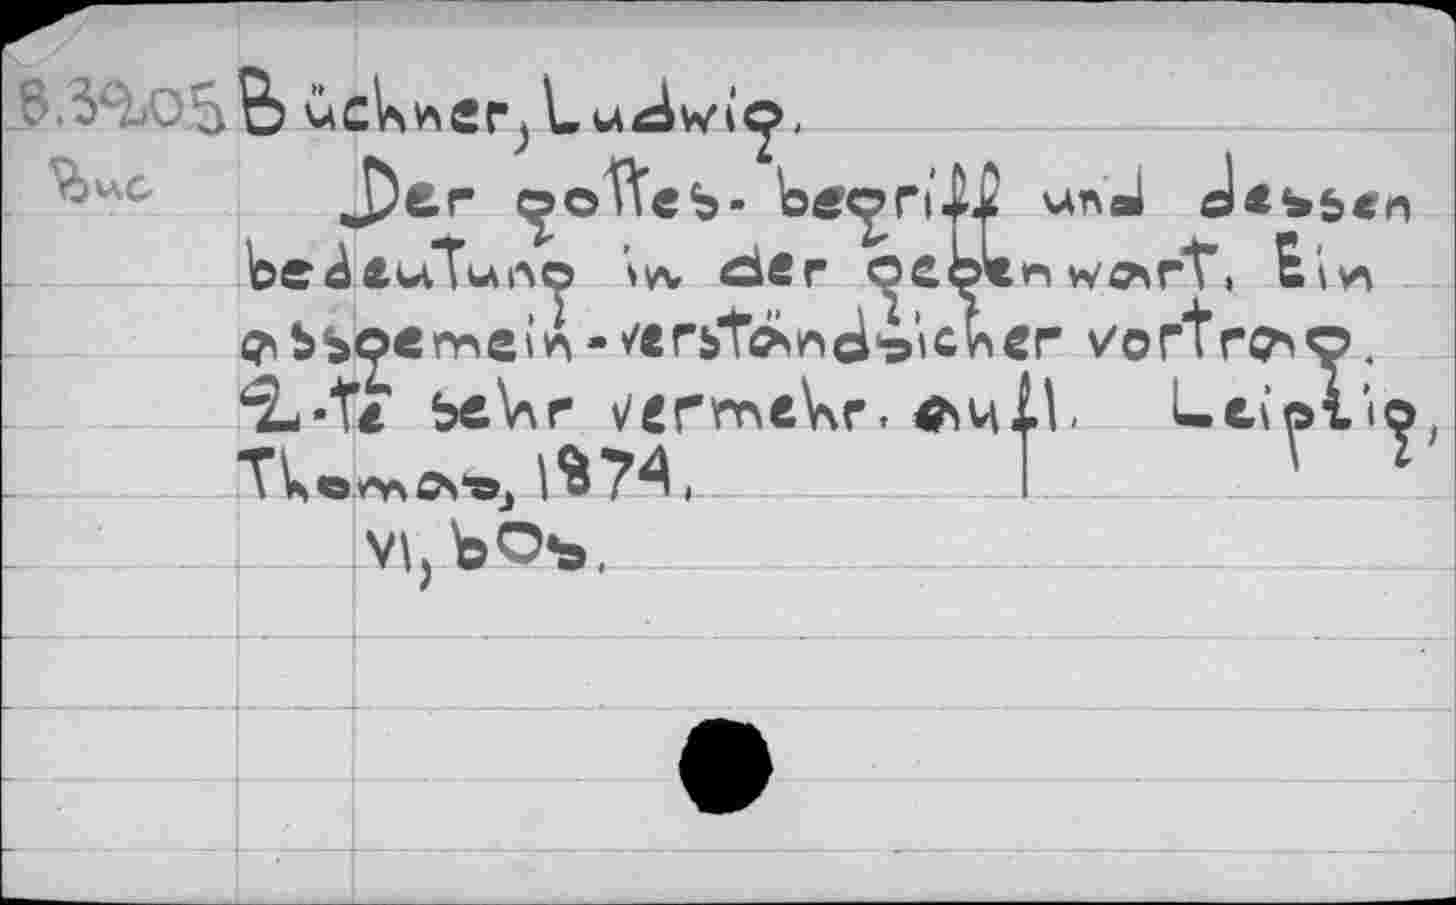 B.3205 Büchner, Ludwig.
Buc Der gottes-begriff und dessen
bedeutung in der gegenwart. Ein
allgemein-verständlicher vortrag.
2.te sehr vermehr. aufl. Leipzig,
Thomas, 1874.
vi, 60 s.